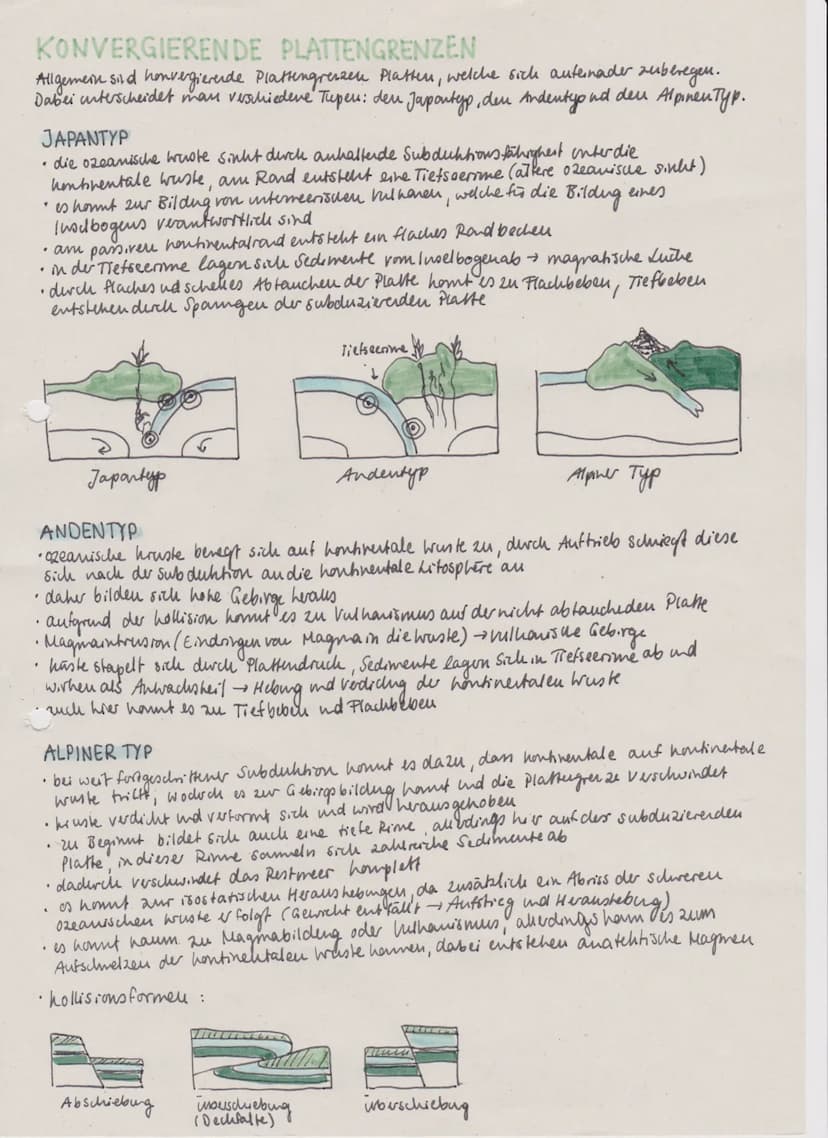 KONVERGIERENDE PLATTENGRENZEN
Allgemein sind konvergierende Plattengrenzen Platten, welche sich aufeinader zubewegen.
Dabei unterscheidet man verschiedene Typen: den Japantyp, den Andentyp und den Alpinen Typ.
JAPANTYP
• die ozeanische Kruste sinkt durch anhaltende Subduktionsfähigkeit unter die
kontinentale Kruste, am Rand entsteht eine Tiefseerinne (ältere ozeanische sinkt)
• es kommt zur Bildung von untermeerischen Vulkanen, welche für die Bildung eines
Inselbogens verantwortlich sind
• am passiven Kontinentalrand entsteht ein flaches Randbecken
• in der Tiefseerinne lagern sich Sedimente vom Inselbogen ab → magmatische Küche
• durch flaches und schnelles Abtauchen der Platte kommt es zu Flachbeben, Tiefbeben
entstehen durch Spannungen der subduzierenden Platte
Tiefseerinne
Japantyp
Andentyp
Alpiner Typ
ANDENTYP
• ozeanische Kruste bewegt sich auf kontinentale Kruste zu, durch Auftrieb schmiegt diese
sich nach der Subduktion an die kontinentale Litosphäre an
• daher bilden sich hohe Gebirge heraus
• aufgrund der Kollision kommt es zu Vulkanismus auf der nicht abtauchenden Platte
• Magmaintrusion (Eindringen von Magma in die Kruste) → vulkanische Gebirge
• Kruste stapelt sich durch Plattendruck, Sedimente lagern sich in Tiefseerinne ab und
wirken als Anwachskeil → Hebung und Verdickung der kontinentalen Kruste
• auch hier kommt es zu Tiefbeben und Flachbeben
ALPINER TYP
• bei weit fortgeschrittener Subduktion kommt es dazu, dass kontinentale auf kontinentale
Kruste trifft, wodurch es zur Gebirgsbildung kommt und die Plattengrenze verschwindet
• Kruste verdickt und verformt sich und wird herausgehoben
• zu Beginnt bildet sich auch eine tiefe Rinne, allerdings hier auf der subduzierenden
Platte, in dieser Rinne sammeln sich zahlreiche Sedimente ab
• dadurch verschwindet das Restmeer komplett
• es kommt zur isostatischen Heraushebungen, da zusätzlich ein Abriss der schweren
ozeanischen Kruste erfolgt (Gewicht entfällt → Aufstieg und Heraushebung)
• es kommt kaum zu Magmabildung oder Vulkanismus, allerdings kann es zum
Aufschmelzen der kontinentalen Kruste kommen, dabei entstehen anatektische Magmen
• Kollisionsformen :
Abschiebung
Überschiebung
(Deckfalte)
Überschiebung